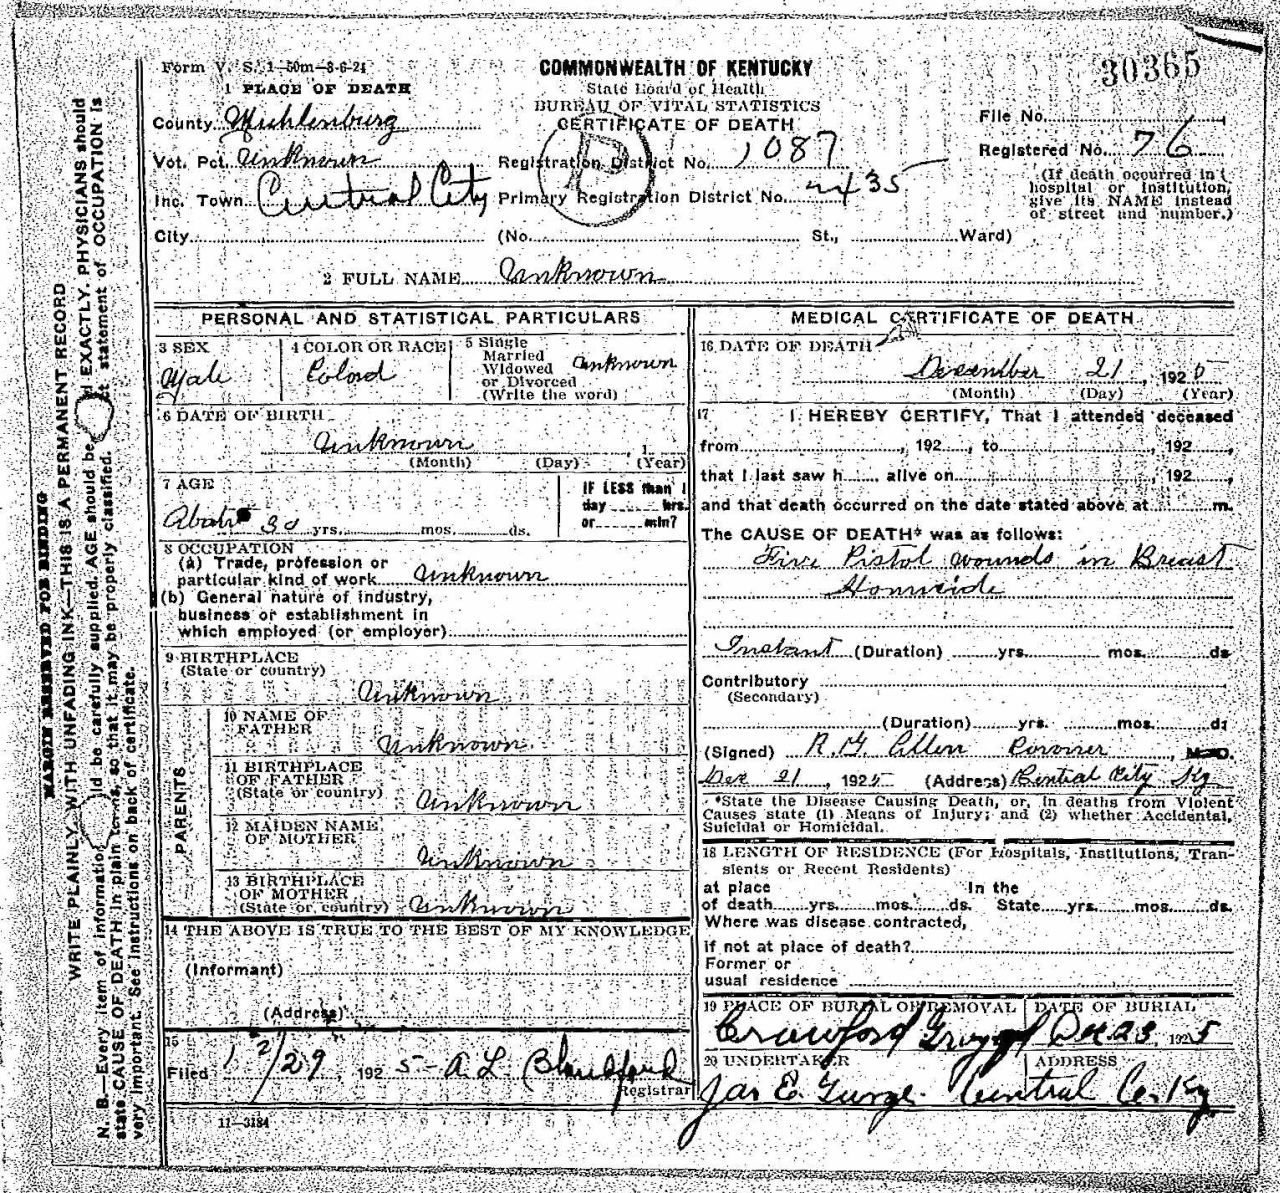 Form V. S. 1—50m—8-6-24
COMMONWEALTH OF KENTUCKY
30365
1 PLACE OF DEATH
State Board of Health
BUREAU OF VITAL STATISTICS
CERTIFICATE OF DEATH
File No.
County Muhlenburg
Registered No. 76
Vot. Pct. Unknown
Registration District No. 1087
(If death occurred in
hospital or institution,
give its NAME instead
of street and number.)
Inc. Town Central City
Primary Registration District No. 2435
City (No. St., Ward)
2 FULL NAME Unknown
PERSONAL AND STATISTICAL PARTICULARS
3 SEX
Male
4 COLOR OR RACE
Colord
5 Single
Married
Widowed
or Divorced
(Write the word)
Unknown
6 DATE OF BIRTH
Unknown 1
(Month) (Day) (Year)
7 AGE
About 30 yrs. mos. ds.
IF LESS than 1
day hrs.
or min?
8 OCCUPATION
(a) Trade, profession or
particular kind of work Unknown
(b) General nature of industry,
business or establishment in
which employed (or employer)
9 BIRTHPLACE
(State or country)
Unknown
PARENTS
10 NAME OF
FATHER
Unknown
11 BIRTHPLACE
OF FATHER
(State or country)
Unknown
12 MAIDEN NAME
OF MOTHER
Unknown
13 BIRTHPLACE
OF MOTHER
(State or country) Unknown
14 THE ABOVE IS TRUE TO THE BEST OF MY KNOWLEDGE
(Informant)
(Address)
15
Filed 12/29, 1925 A. L. Blandford
Registrar
11—3184
MEDICAL CERTIFICATE OF DEATH
16 DATE OF DEATH
December 21, 1925
(Month) (Day) (Year)
17 I HEREBY CERTIFY, That I attended deceased
from , 192 , to , 192
that I last saw h alive on , 192
and that death occurred on the date stated above at m.
The CAUSE OF DEATH* was as follows:
Five Pistol wounds in Breast
Homicide
Instant (Duration) yrs. mos. ds
Contributory
(Secondary)
(Duration) yrs. mos. ds
(Signed) Coroner, M. D.
Dec 21, 1925 (Address) Central City Ky
*State the Disease Causing Death, or, in deaths from Violent
Causes state (1) Means of Injury; and (2) whether Accidental,
Suicidal or Homicidal.
18 LENGTH OF RESIDENCE (For Hospitals, Institutions, Tran-
sients or Recent Residents)
at place In the
of death yrs. mos. ds. State yrs. mos. ds.
Where was disease contracted,
if not at place of death?
Former or
usual residence
19 PLACE OF BURIAL OR REMOVAL
Crawford
DATE OF BURIAL
Dec 23, 1925
20 UNDERTAKER
Jas E.
ADDRESS
Central Ky
MARGIN RESERVED FOR BINDING
WRITE PLAINLY, WITH UNFADING INK—THIS IS A PERMANENT RECORD
N. B.—Every item of information should be carefully supplied. AGE should be EXACTLY. PHYSICIANS should
state CAUSE OF DEATH in plain terms, so that it may be properly classified. statement of OCCUPATION is
very important. See instructions on back of certificate.